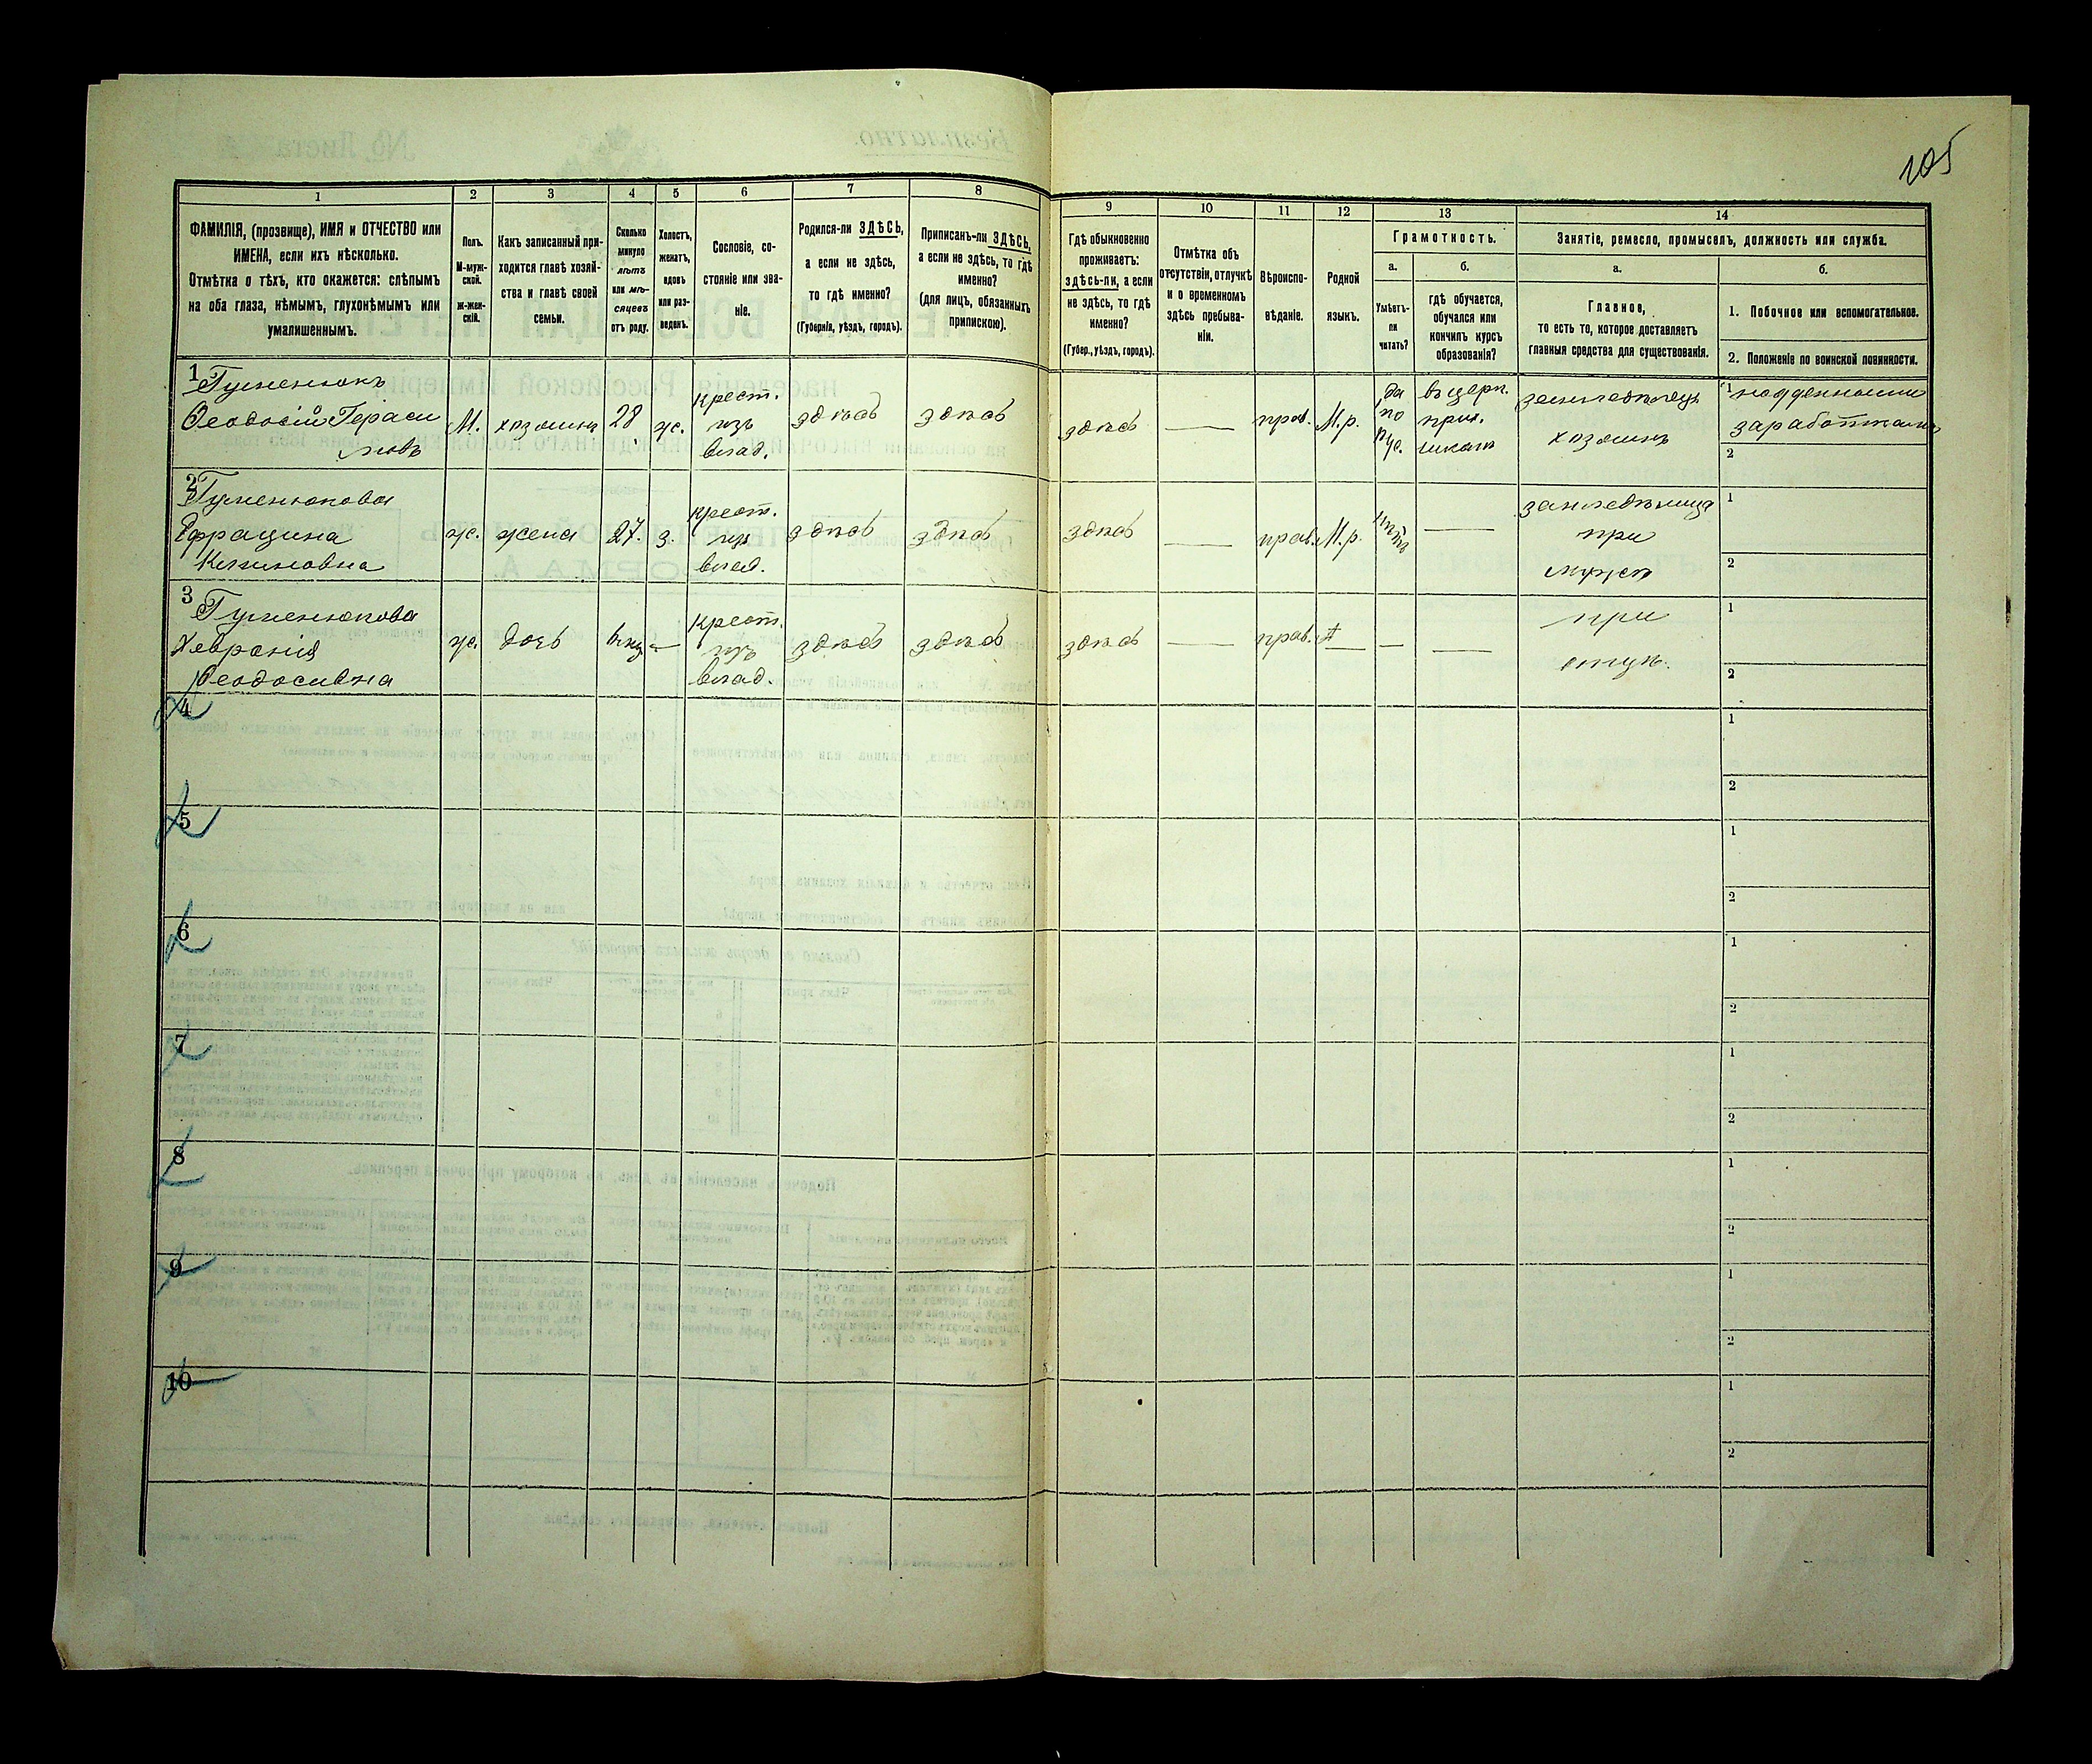 105
1
2
3
4
5
6
7
8
9
10
11
12
13
14
ФАМИЛІЯ, (прозвище), ИМЯ и ОТЧЕСТВО или
ИМЕНА, если ихъ нѣсколько.
Отмѣтка о тѣхъ, кто окажется: слѣпымъ
на оба глаза, нѣмымъ, глухонѣмымъ или
умалишеннымъ.
Полъ.
М-муж-
ской.
ж-жен-
скій.
Какъ записанный при-
ходится главѣ хозяй-
ства и главѣ своей
семьи.
Сколько
минуло
лѣтъ
или мѣ-
сяцевъ
отъ роду.
Холостъ,
женатъ,
вдовъ
или раз-
веденъ.
Сословіе, со-
стояніе или зва-
ніе.
Родился-ли ЗДѢСЬ,
а если не здѣсь,
то гдѣ именно?
(Губернія, уѣздъ, городъ).
Приписанъ-ли ЗДѢСЬ,
а если не здѣсь, то гдѣ
именно?
(для лицъ, обязанныхъ
припискою).
Гдѣ обыкновенно
проживаетъ:
здѣсь-ли, а если
не здѣсь, то гдѣ
именно?
(Губер., уѣздъ, городъ).
Отмѣтка объ
отсутствіи, отлучкѣ
и о временномъ
здѣсь пребыва-
ніи.
Вѣроиспо-
вѣданіе.
Родной
языкъ.
Грамотность.
а.
Умѣетъ-
ли
читать?
б.
гдѣ обучается,
обучался или
кончилъ курсъ
образованія?
Занятіе, ремесло, промыселъ, должность или служба.
а.
Главное,
то есть то, которое доставляетъ
главныя средства для существованія.
б.
1. Побочное или вспомогательное.
2. Положеніе по воинской повинности.
1
Гуменюкъ
Ѳеодосій Гераси
мовъ
М.
хозяинъ
28
ж.
крест.
изъ
влад.
здѣсь
здѣсь
здѣсь
—
прав.
М.р.
да
по
рус.
въ церк.
прих.
школѣ
земледѣлецъ
хозяинъ
1
заработками
2
2
Гуменюкова
Ефразина
ж.
жена
27.
з.
крест.
изъ
влад.
здѣсь
здѣсь
здѣсь
—
прав.
М.р.
нѣтъ
—
при
мужѣ
1
2
3
Гуменюкова
Хевронія
Ѳеодосивна
ж.
дочь
—
крест.
изъ
влад.
здѣсь
здѣсь
здѣсь
—
прав.
—
—
—
при
отцѣ.
1
2
4
1
2
5
1
2
6
1
2
7
1
2
8
1
2
9
1
2
10
1
2